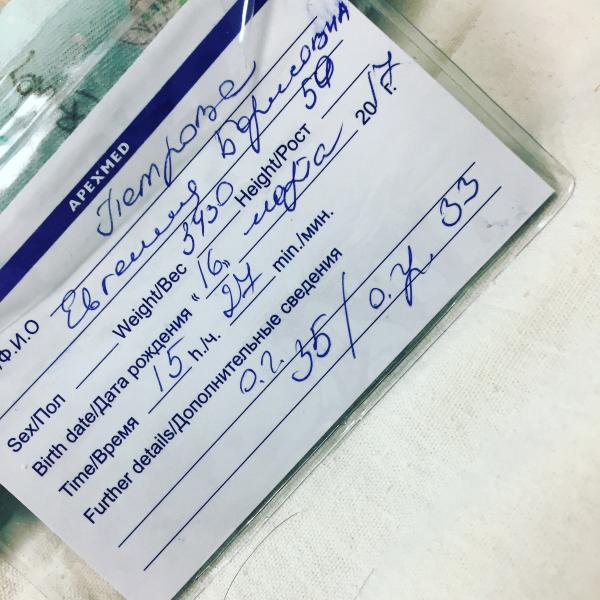 APEXMED
Петрова
Ф.И.О Евгения Борисовна
Sex/Пол Weight/Вес 3930 Height/Рост 50
Birth date/Дата рождения "16" марта 2017 г.
Time/Время 15 h/ч. 27 min./мин.
Further details/Дополнительные сведения
о.г. 35/о.ж. 33